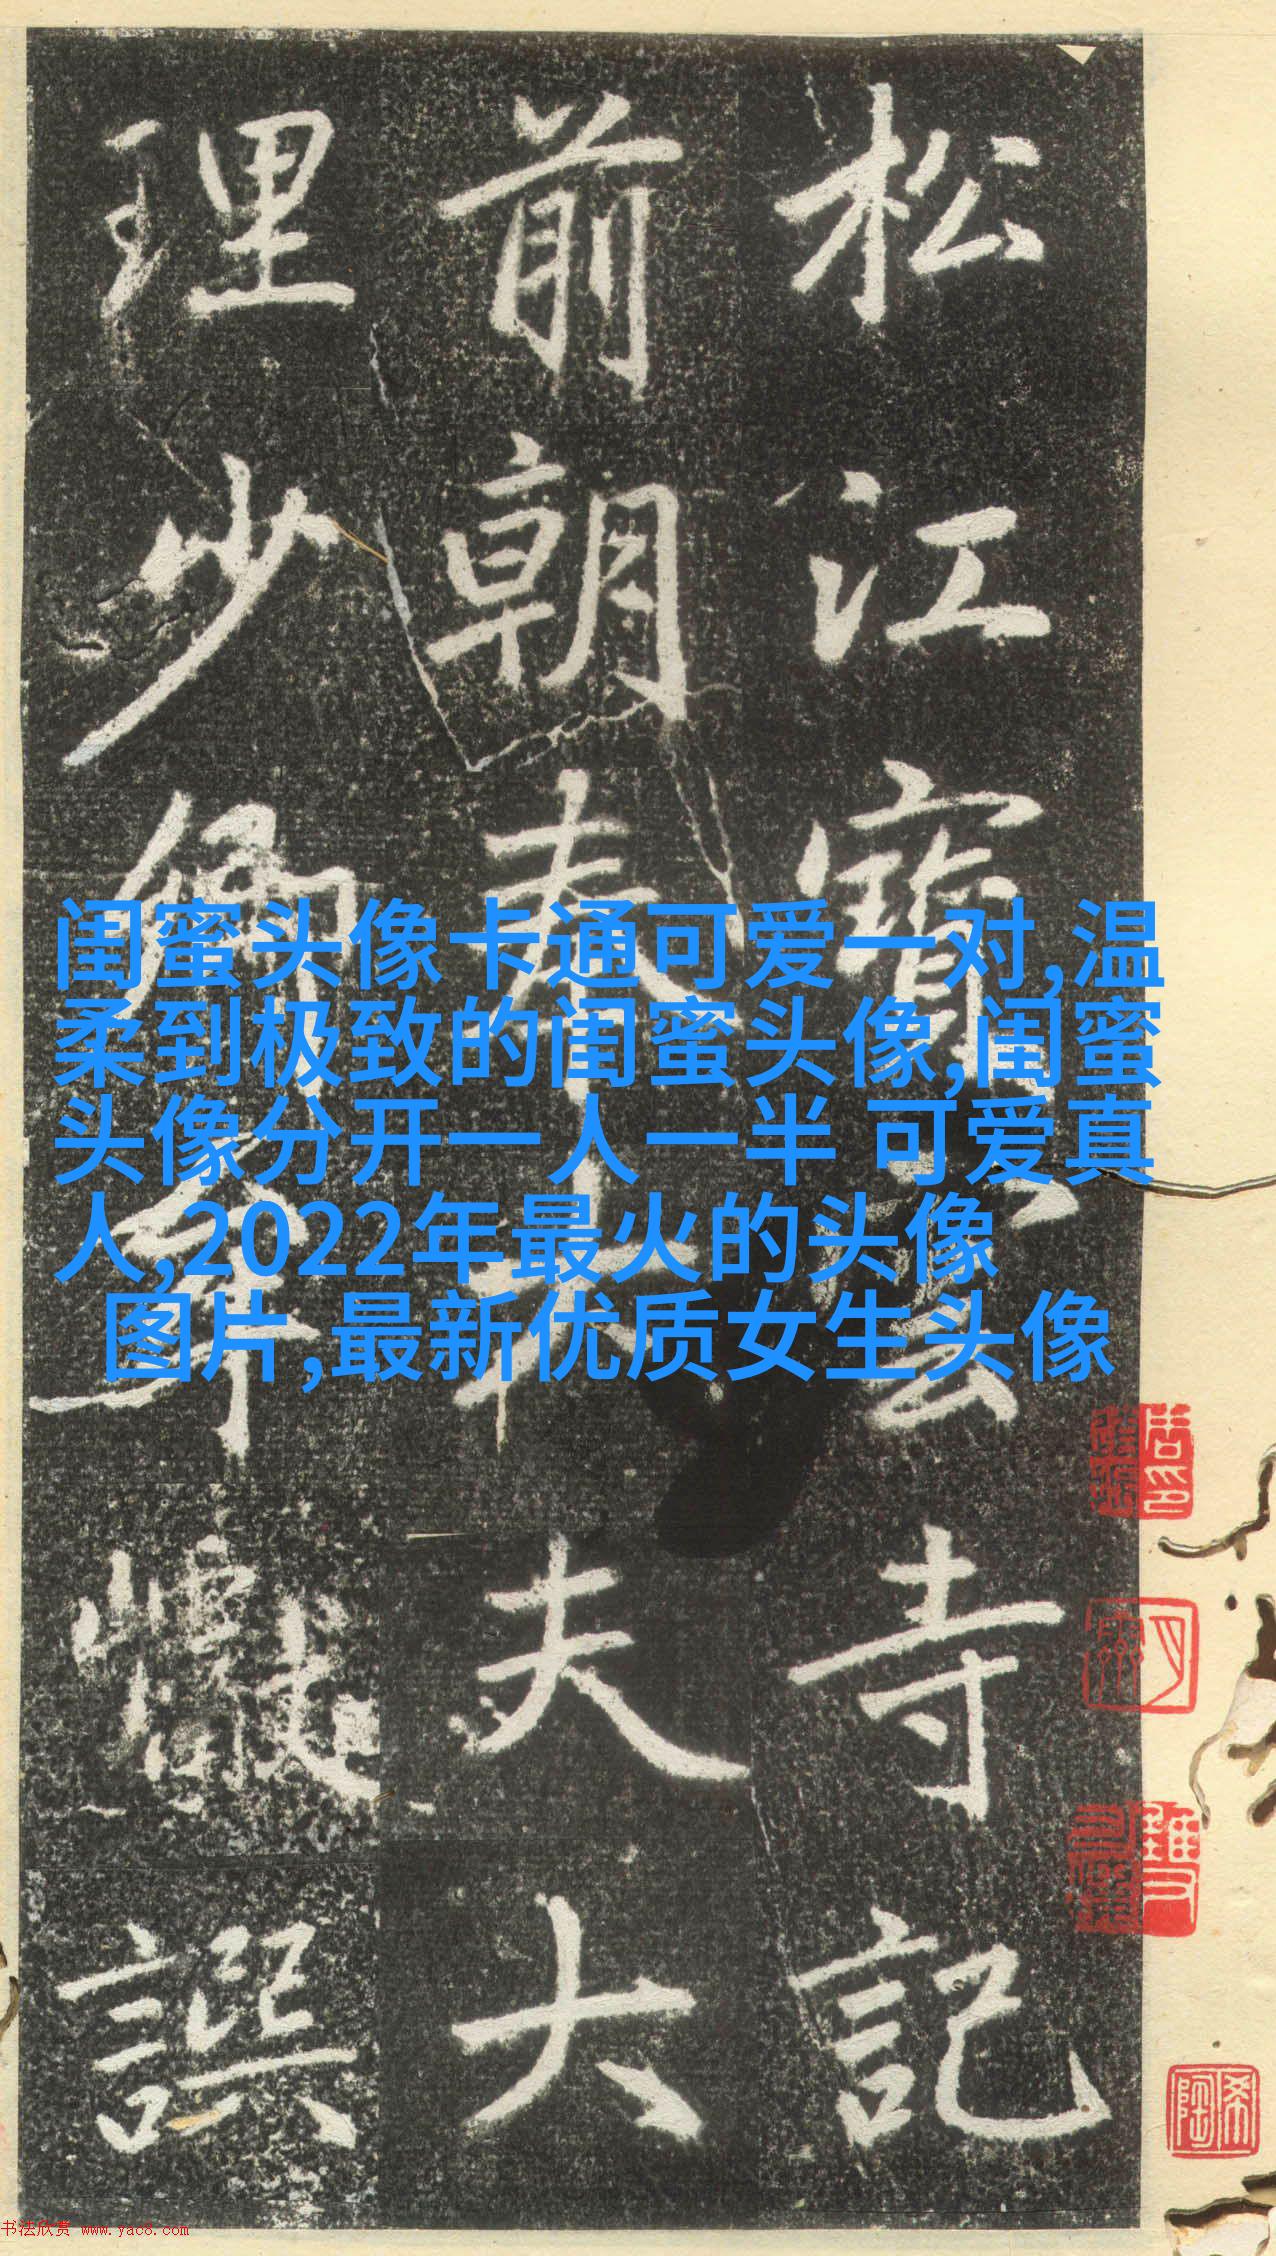 松江寶雲寺記
前朝奉大夫大
理少卿牟譔
闺蜜头像卡通可爱一对,温
柔到极致的闺蜜头像,闺蜜
头像分开一人一半 可爱真
人,2022年最火的头像
图片,最新优质女生头像
希陶
书法欣赏 www.yac8.com